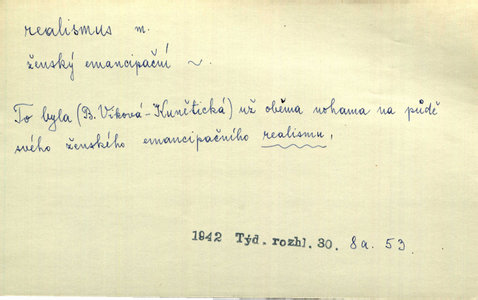 realismus m.
ženský emancipační ~.
To byla (B. Viková-Kunětická) už oběma nohama na půdě
svého ženského emancipačního realismu.
1942 Týd. rozhl. 30. 8a. 53.